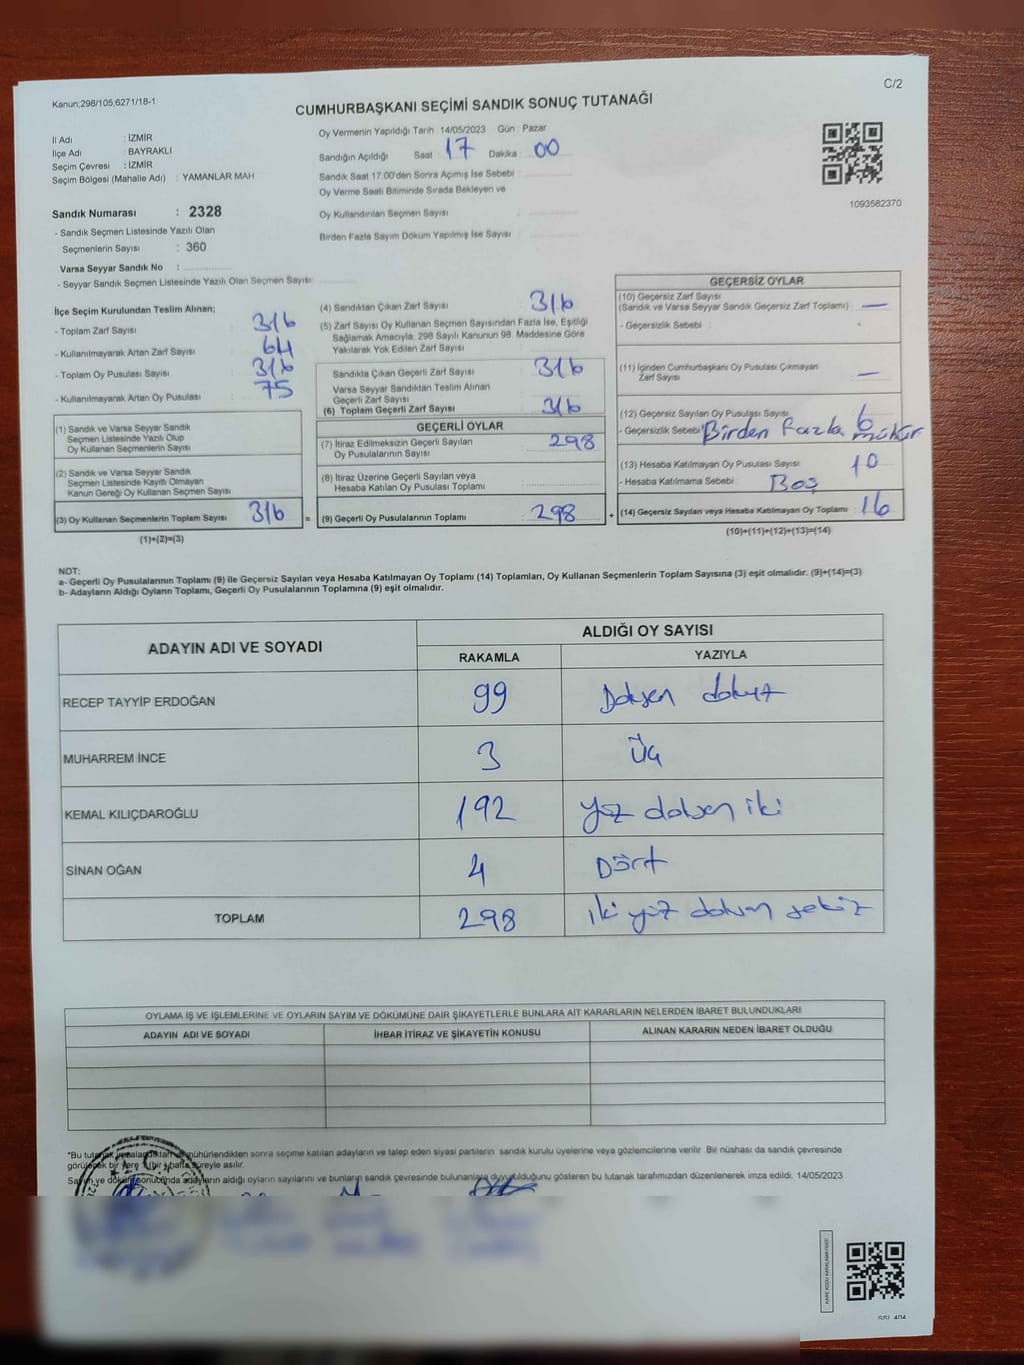 C/2
Kanun;298/105,6271/18-1
CUMHURBAŞKANI SEÇİMİ SANDIK SONUÇ TUTANAĞI
İl Adı : İZMİR
İlçe Adı : BAYRAKLI
Seçim Çevresi : İZMİR
Seçim Bölgesi (Mahalle Adı) : YAMANLAR MAH
Sandık Numarası : 2328
- Sandık Seçmen Listesinde Yazılı Olan
Seçmenlerin Sayısı : 360
Varsa Seyyar Sandık No :
- Seyyar Sandık Seçmen Listesinde Yazılı Olan Seçmen Sayısı:
Oy Vermenin Yapıldığı Tarih :14/05/2023 Gün : Pazar
Sandığın Açıldığı Saat : 17 Dakika : 00
Sandık Saat 17:00'den Sonra Açımış İse Sebebi :
Oy Verme Saati Bitiminde Sırada Bekleyen ve
Oy Kullandırılan Seçmen Sayısı :
Birden Fazla Sayım Döküm Yapılmış İse Sayısı :
1093582370
İlçe Seçim Kurulundan Teslim Alınan;
- Toplam Zarf Sayısı : 316
- Kullanılmayarak Artan Zarf Sayısı : 64
- Toplam Oy Pusulası Sayısı :
- Kullanılmayarak Artan Oy Pusulası : 75
(1) Sandık ve Varsa Seyyar Sandık
Seçmen Listesinde Yazılı Olup
Oy Kullanan Seçmenlerin Sayısı :
(2) Sandık ve Varsa Seyyar Sandık
Seçmen Listesinde Kayıtlı Olmayan
Kanun Gereği Oy Kullanan Seçmen Sayısı :
(3) Oy Kullanan Seçmenlerin Toplam Sayısı : 316
(1)+(2)=(3)
(4) Sandıktan Çıkan Zarf Sayısı : 316
(5) Zarf Sayısı Oy Kullanan Seçmen Sayısından Fazla İse, Eşitliği
Sağlamak Amacıyla; 298 Sayılı Kanunun 98. Maddesine Göre
Yakılarak Yok Edilen Zarf Sayısı :
Sandıkta Çıkan Geçerli Zarf Sayısı : 316
Varsa Seyyar Sandıktan Teslim Alınan
Geçerli Zarf Sayısı :
(6) Toplam Geçerli Zarf Sayısı : 316
GEÇERLİ OYLAR
(7) İtiraz Edilmeksizin Geçerli Sayılan
Oy Pusulalarının Sayısı : 298
(8) İtiraz Üzerine Geçerli Sayılan veya
Hesaba Katılan Oy Pusulası Toplamı :
= (9) Geçerli Oy Pusulalarının Toplamı : 298 +
GEÇERSİZ OYLAR
(10) Geçersiz Zarf Sayısı
(Sandık ve Varsa Seyyar Sandık Geçersiz Zarf Toplamı) : —
- Geçersizlik Sebebi :
(11) İçinden Cumhurbaşkanı Oy Pusulası Çıkmayan
Zarf Sayısı : —
(12) Geçersiz Sayılan Oy Pusulası Sayısı : 6
- Geçersizlik Sebebi : Birden fazla mühür
(13) Hesaba Katılmayan Oy Pusulası Sayısı : 10
- Hesaba Katılmama Sebebi : Boş
(14) Geçersiz Sayılan veya Hesaba Katılmayan Oy Toplamı : 16
(10)+(11)+(12)+(13)=(14)
NOT:
a- Geçerli Oy Pusulalarının Toplamı (9) ile Geçersiz Sayılan veya Hesaba Katılmayan Oy Toplamı (14) Toplamları, Oy Kullanan Seçmenlerin Toplam Sayısına (3) eşit olmalıdır. (9)+(14)=(3)
b- Adayların Aldığı Oyların Toplamı, Geçerli Oy Pusulalarının Toplamına (9) eşit olmalıdır.
ADAYIN ADI VE SOYADI ALDIĞI OY SAYISI
RAKAMLA YAZIYLA
RECEP TAYYİP ERDOĞAN 99 Doksen dokuz
MUHARREM İNCE 3 Üç
KEMAL KILIÇDAROĞLU 192 yüz doksen iki
SİNAN OĞAN 4 Dört
TOPLAM 298 iki yüz doksen sekiz
OYLAMA İŞ VE İŞLEMLERİNE VE OYLARIN SAYIM VE DÖKÜMÜNE DAİR ŞİKAYETLERLE BUNLARA AİT KARARLARIN NELERDEN İBARET BULUNDUKLARI
ADAYIN ADI VE SOYADI İHBAR İTİRAZ VE ŞİKAYETİN KONUSU ALINAN KARARIN NEDEN İBARET OLDUĞU
*Bu tutanak mühürlendikten sonra seçime katılan adayların ve talep eden siyasi partilerin sandık kurulu üyelerine veya gözlemcilerine verilir. Bir nüshası da sandık çevresinde
görülecek bir yere 1 (bir) hafta süreyle asılır.
Sayım ve döküm sonubunda adayların aldığı oyların sayılarını ve bunların sandık çevresinde bulunanlara duyurulduğunu gösteren bu tutanak tarafımızdan düzenlenerek imza edildi. 14/05/2023